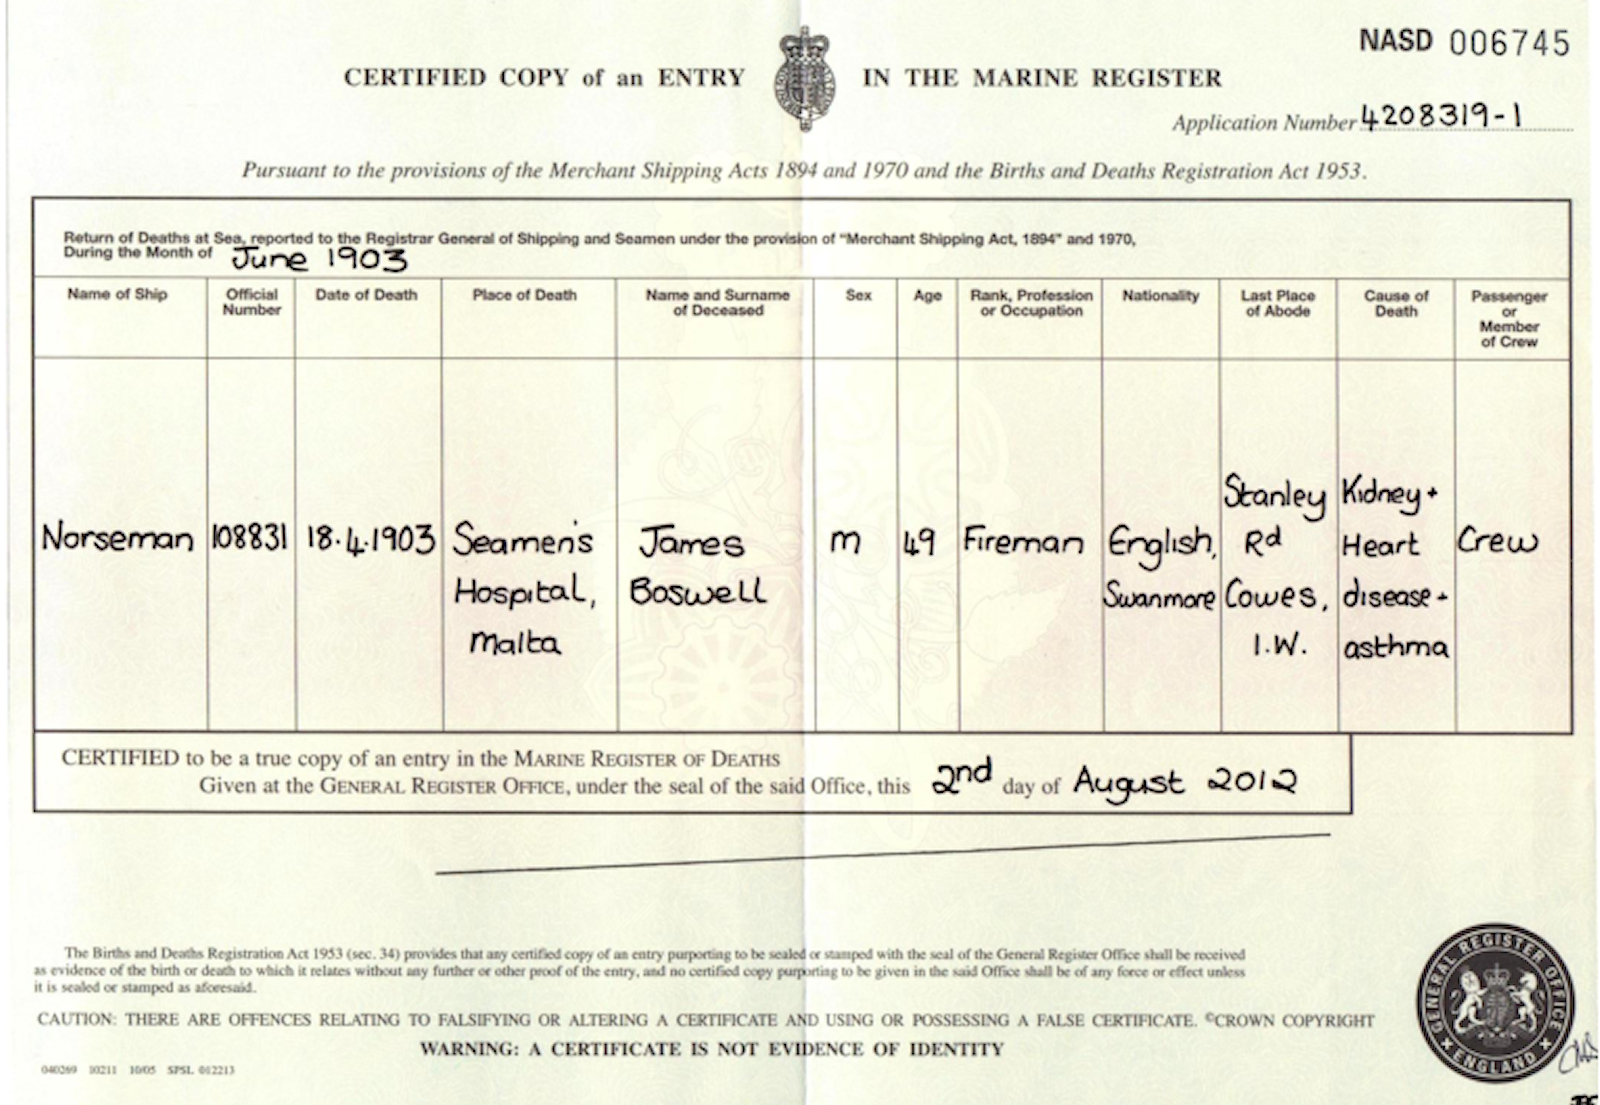 NASD 006745
CERTIFIED COPY of an ENTRY IN THE MARINE REGISTER
Application Number 4208319-1
Pursuant to the provisions of the Merchant Shipping Acts 1894 and 1970 and the Births and Deaths Registration Act 1953.
Return of Deaths at Sea, reported to the Registrar General of Shipping and Seamen under the provision of "Merchant Shipping Act, 1894" and 1970,
During the Month of June 1903
Name of Ship
Official
Number
Date of Death
Place of Death
Name and Surname
of Deceased
Sex
Age
Rank, Profession
or Occupation
Nationality
Last Place
of Abode
Cause of
Death
Passenger
or
Member
of Crew
Norseman
108831
18.4.1903
Seamen's
Hospital,
Malta
James
Boswell
m
49
Fireman
English,
Swanmore
Stanley
Rd
Cowes,
I.W.
Kidney +
Heart
disease +
asthma
Crew
CERTIFIED to be a true copy of an entry in the MARINE REGISTER OF DEATHS
Given at the GENERAL REGISTER OFFICE, under the seal of the said Office, this 2nd day of August 2012
The Births and Deaths Registration Act 1953 (sec. 34) provides that any certified copy of an entry purporting to be sealed or stamped with the seal of the General Register Office shall be received
as evidence of the birth or death to which it relates without any further or other proof of the entry, and no certified copy purporting to be given in the said Office shall be of any force or effect unless
it is sealed or stamped as aforesaid.
CAUTION: THERE ARE OFFENCES RELATING TO FALSIFYING OR ALTERING A CERTIFICATE AND USING OR POSSESSING A FALSE CERTIFICATE. ©CROWN COPYRIGHT
WARNING: A CERTIFICATE IS NOT EVIDENCE OF IDENTITY
040269 10211 10/05 SPSL 012213
GENERAL REGISTER OFFICE
ENGLAND